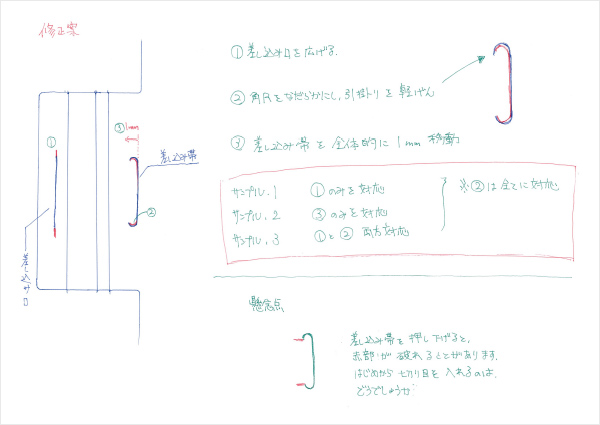 修正案
① 差し込み口を広げる.
② 角Rをなだらかにし、引掛りを軽げん
③ 差し込み帯を全体的に1mm移動
サンプル.1 ①のみを対応
サンプル.2 ③のみを対応
サンプル.3 ①と②両方対応
※②は全てに対応
①
③ 1mm
差し込み帯
②
差し込み口
懸念点
差し込み帯を押し下げると、
赤部が破れることがあります.
はじめから切り目を入れるのは.
どうでしょうか